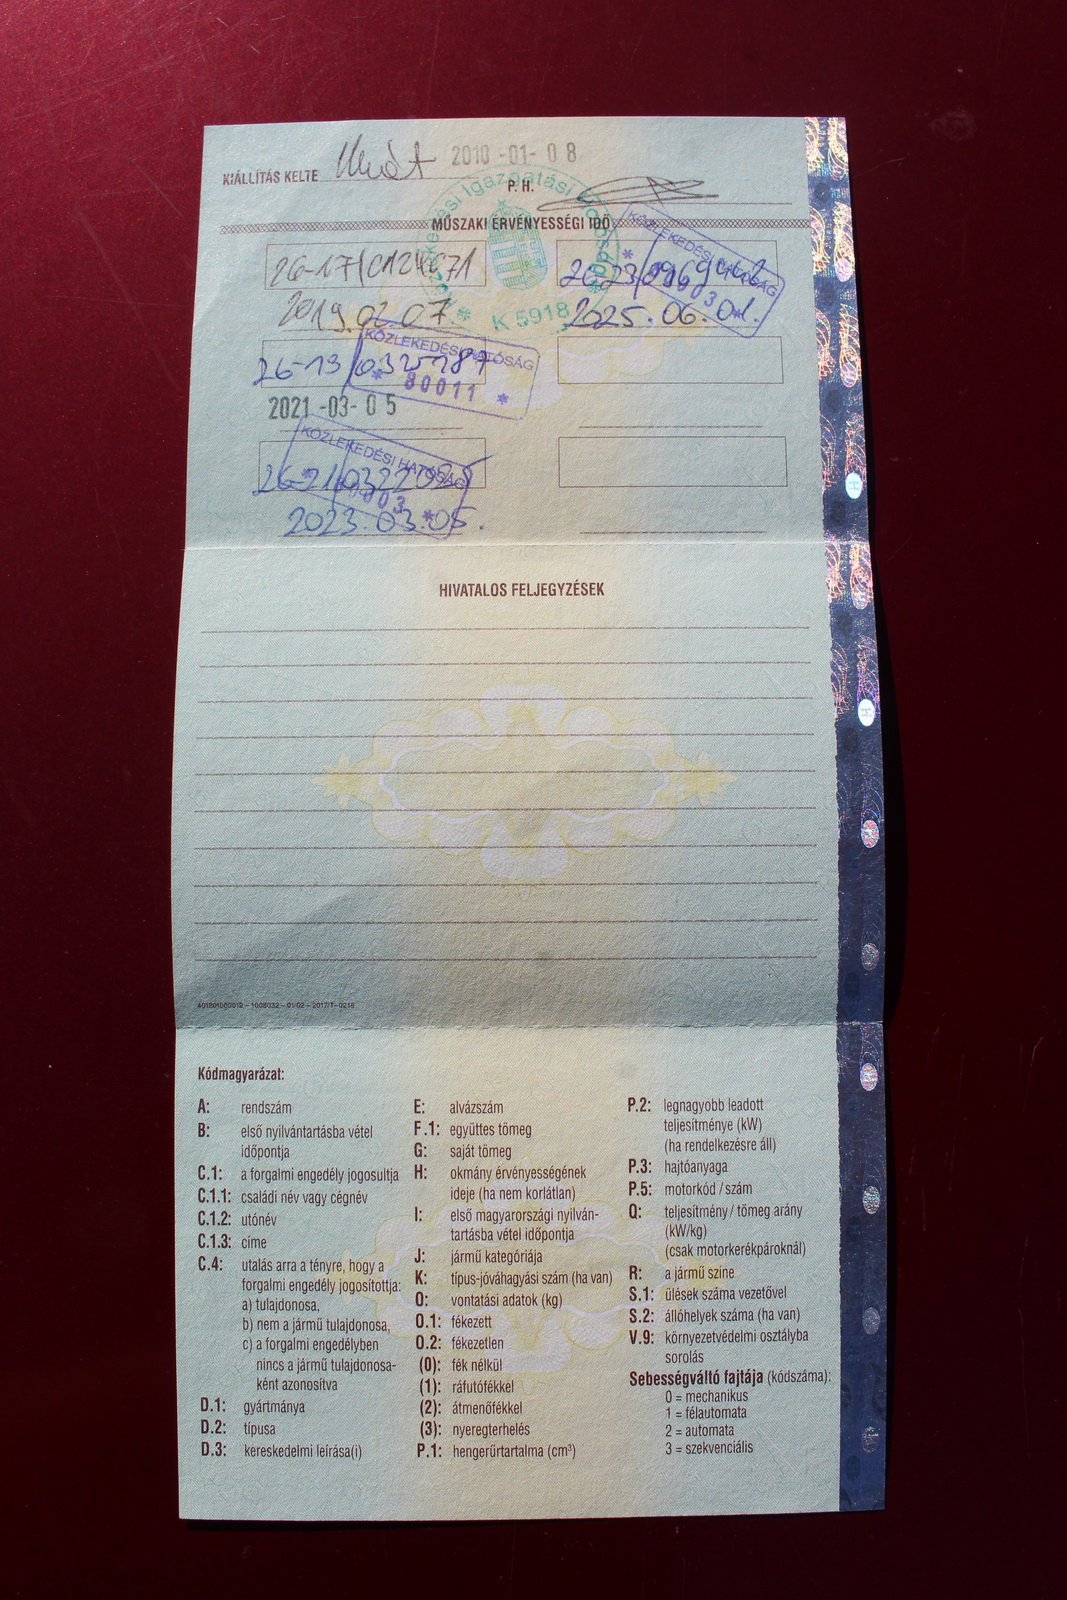 KIÁLLÍTÁS KELTE 2010 -01- 08
P. H.
MŰSZAKI ÉRVÉNYESSÉGI IDŐ
K 5918
2019.02.07.
KÖZLEKEDÉSI HATÓSÁG
2025.06.01.
KÖZLEKEDÉSI HATÓSÁG
80011
2021 -03- 05
KÖZLEKEDÉSI HATÓSÁG
2023.03.05.
HIVATALOS FELJEGYZÉSEK
Kódmagyarázat:
A: rendszám
B: első nyilvántartásba vétel
időpontja
C.1: a forgalmi engedély jogosultja
C.1.1: családi név vagy cégnév
C.1.2: utónév
C.1.3: címe
C.4: utalás arra a tényre, hogy a
forgalmi engedély jogosítottja:
a) tulajdonosa,
b) nem a jármű tulajdonosa,
c) a forgalmi engedélyben
nincs a jármű tulajdonosa-
ként azonosítva
D.1: gyártmánya
D.2: típusa
D.3: kereskedelmi leírása(i)
E: alvázszám
F.1: együttes tömeg
G: saját tömeg
H: okmány érvényességének
ideje (ha nem korlátlan)
I: első magyarországi nyilván-
tartásba vétel időpontja
J: jármű kategóriája
K: típus-jóváhagyási szám (ha van)
O: vontatási adatok (kg)
O.1: fékezett
O.2: fékezetlen
(0): fék nélkül
(1): ráfutófékkel
(2): átmenőfékkel
(3): nyeregterhelés
P.1: hengerűrtartalma (cm³)
P.2: legnagyobb leadott
teljesítménye (kW)
(ha rendelkezésre áll)
P.3: hajtóanyaga
P.5: motorkód / szám
Q: teljesítmény / tömeg arány
(kW/kg)
(csak motorkerékpároknál)
R: a jármű színe
S.1: ülések száma vezetővel
S.2: állóhelyek száma (ha van)
V.9: környezetvédelmi osztályba
sorolás
Sebességváltó fajtája (kódszáma):
0 = mechanikus
1 = félautomata
2 = automata
3 = szekvenciális